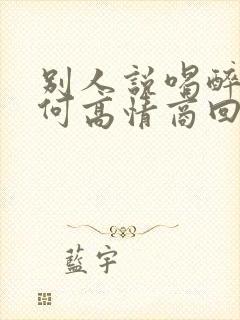 别人説喝醉
何高情商回
藍宇